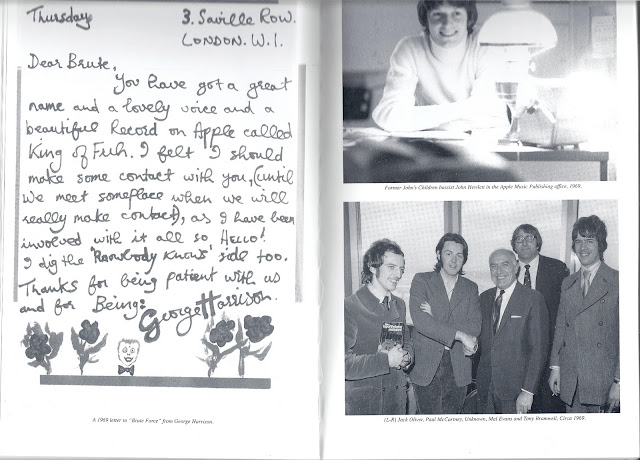 Thursday
3. Saville Row.
LONDON. W.1.
Dear Brute,
You have got a great
name and a lovely voice and a
beautiful Record on Apple called
King of Fuh. I felt I should
make some contact with you, (until
we meet someplace when we will
really make contact), as I have been
involved with it all so, HELLO!
I dig the 'Nowbody Knows' side too.
Thanks for being patient with us
and for Being:
George Harrison.
A 1969 letter to "Brute Force" from George Harrison.
Former John's Children bassist John Hewlett in the Apple Music Publishing office, 1969.
(L-R) Jack Oliver, Paul McCartney, Unknown, Mal Evans and Tony Bramwell, Circa 1969.